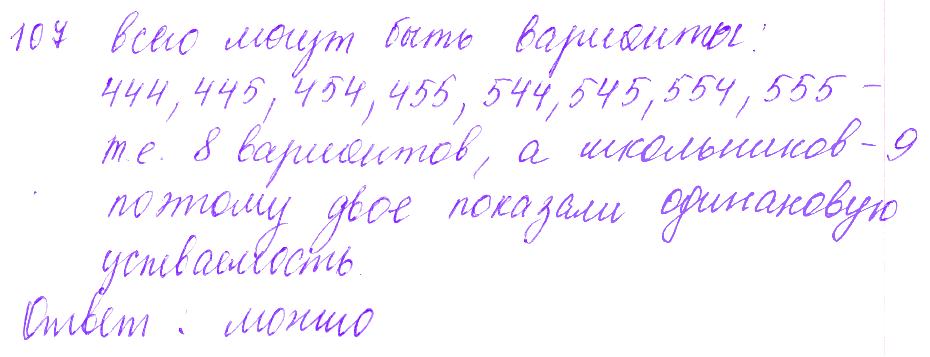 107 всего могут быть варианты:
444, 445, 454, 455, 544, 545, 554, 555 –
т.е. 8 вариантов, а школьников – 9
поэтому двое показали одинаковую
успеваемость.
Ответ: можно